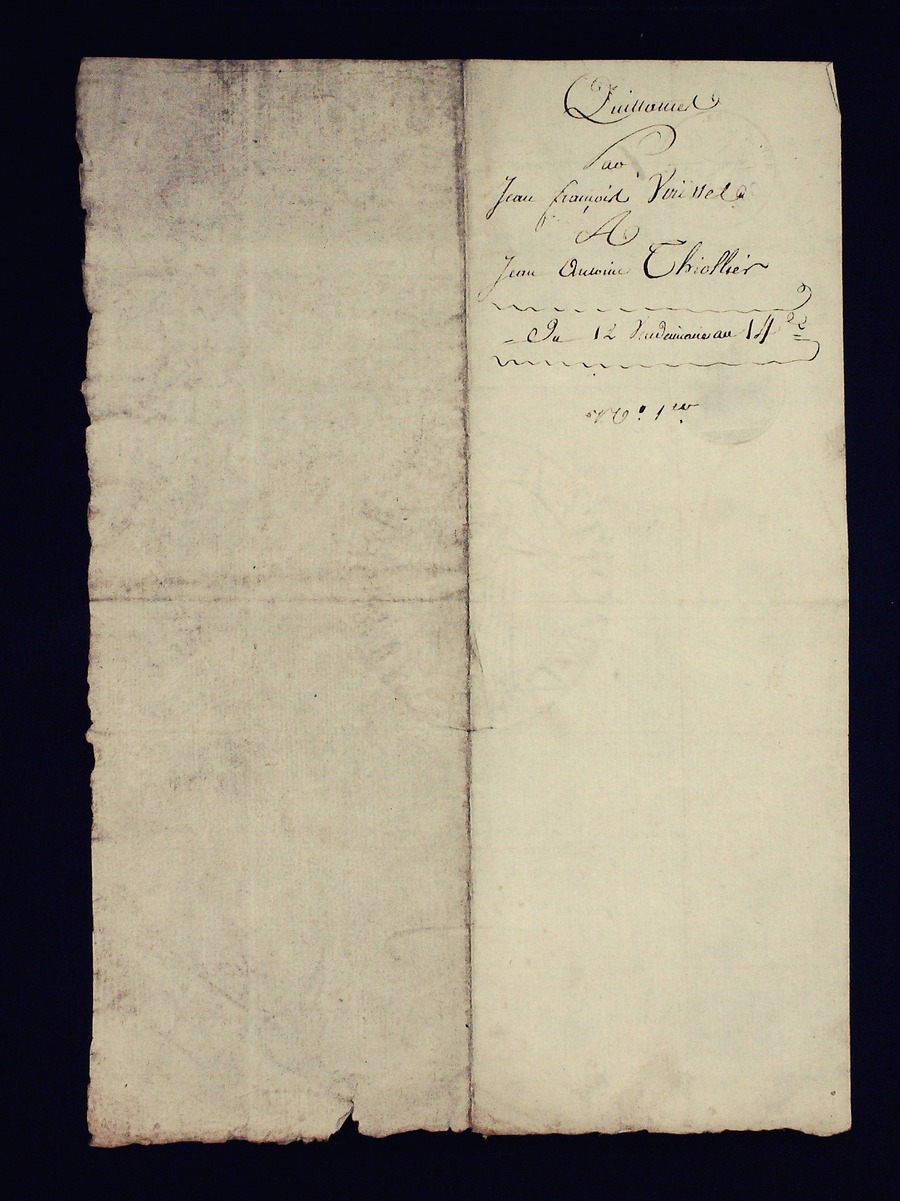 Quittance
Par
Jean françois Voüssel
A
Jean Antoine Thiollier
Du 12 Vendemiaire an 14
N° 1er